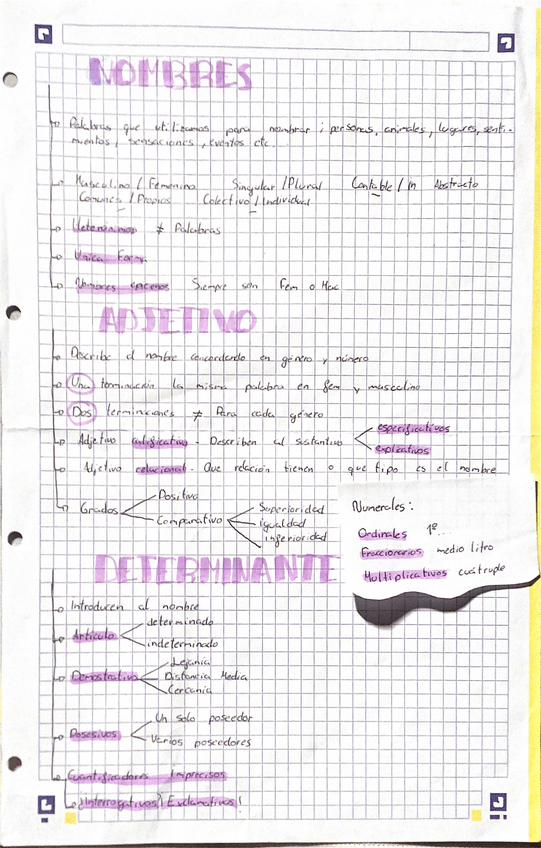 NOMBRES
Palabras que utilizamos para nombrar ; personas, animales, lugares, senti-
mientos, sensaciones, eventos etc.
Masculino / Femenino Singular / Plural Contable / In Abstracto
Comunes / Propios Colectivo / Individual
≠ Palabras
Unica Forma
Nombres epicenos Siempre son Fem o Masc
ADJETIVO
Describe al nombre concordando en género y número
Una terminación la misma palabra en fem y masculino
Dos terminaciones ≠ Para cada género
Adjetivo calificativo - Describen al sustantivo
especificativos
explicativos
Adjetivo relacional - Que relación tienen o que tipo es el nombre
Grados
Positivo
Comparativo
Superioridad
igualdad
inferioridad
Numerales:
Ordinales 1º...
Fraccionarios medio litro
Multiplicativos cuátruple
DETERMINANTE
Introducen al nombre
Articulo
determinado
indeterminado
Demostrativo
Lejania
Distancia Media
Cercania
Posesivos
Un solo poseedor
Varios poseedores
Cuantificadores Imprecisos
¿Interrogativos? Exclamativos!